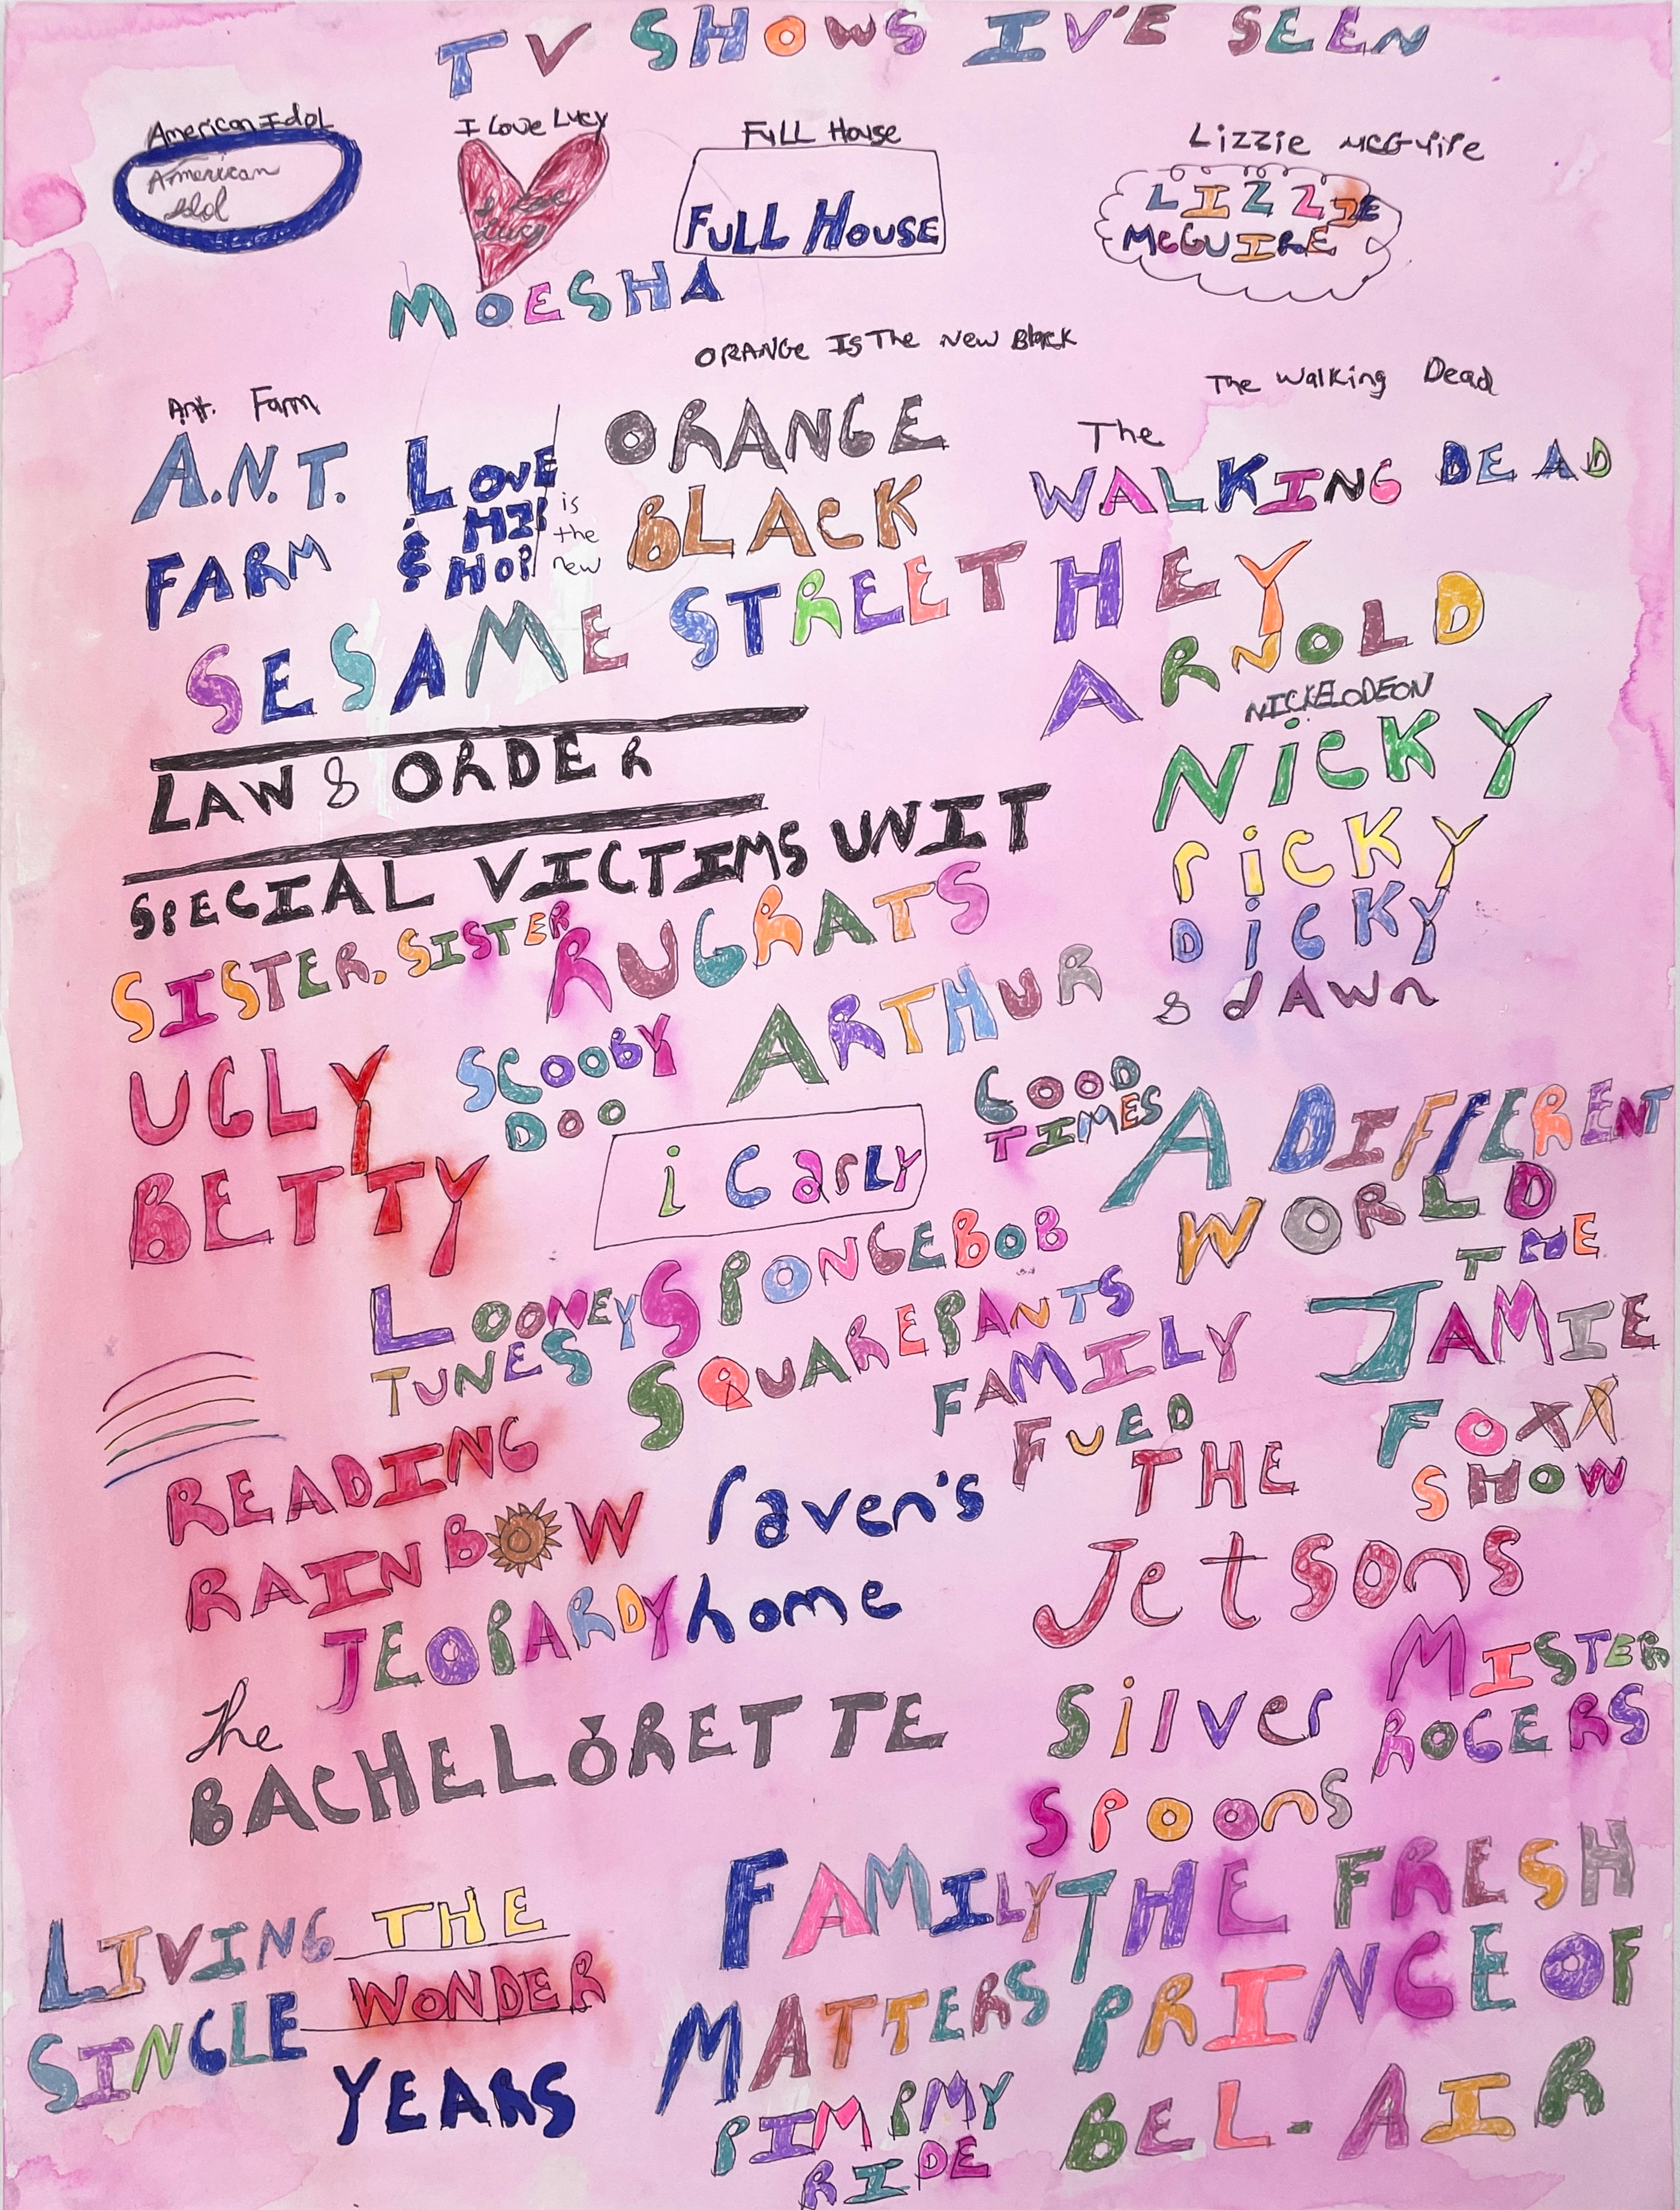 TV SHOWS I'VE SEEN
American Idol
American
Idol
I Love Lucy
I Love
Lucy
Full House
FULL HOUSE
Lizzie McGuire
LIZZIE
MCGUIRE
MOESHA
ORANGE IS The New Black
The Walking Dead
Ant. Farm
A.N.T.
FARM
LOVE
& HIP
HOP
ORANGE
is
the
new
BLACK
The
WALKING DEAD
SESAME STREET
HEY
ARNOLD
LAW & ORDER
SPECIAL VICTIMS UNIT
NICKELODEON
NICKY
RICKY
DICKY
& DAWN
SISTER, SISTER
RUGRATS
UGLY
BETTY
SCOOBY
DOO
ARTHUR
GOOD
TIMES
A DIFFERENT
WORLD
i CARLY
LOONEY
TUNES
SPONGEBOB
SQUAREPANTS
THE
JAMIE
FOXX
SHOW
FAMILY
FUED
READING
RAINBOW
raven's
home
THE
Jetsons
JEOPARDY
MISTER
ROGERS
The
BACHELORETTE
Silver
Spoons
LIVING
SINGLE
THE
WONDER
YEARS
FAMILY
MATTERS
THE FRESH
PRINCE OF
BEL-AIR
PIMP MY
RIDE